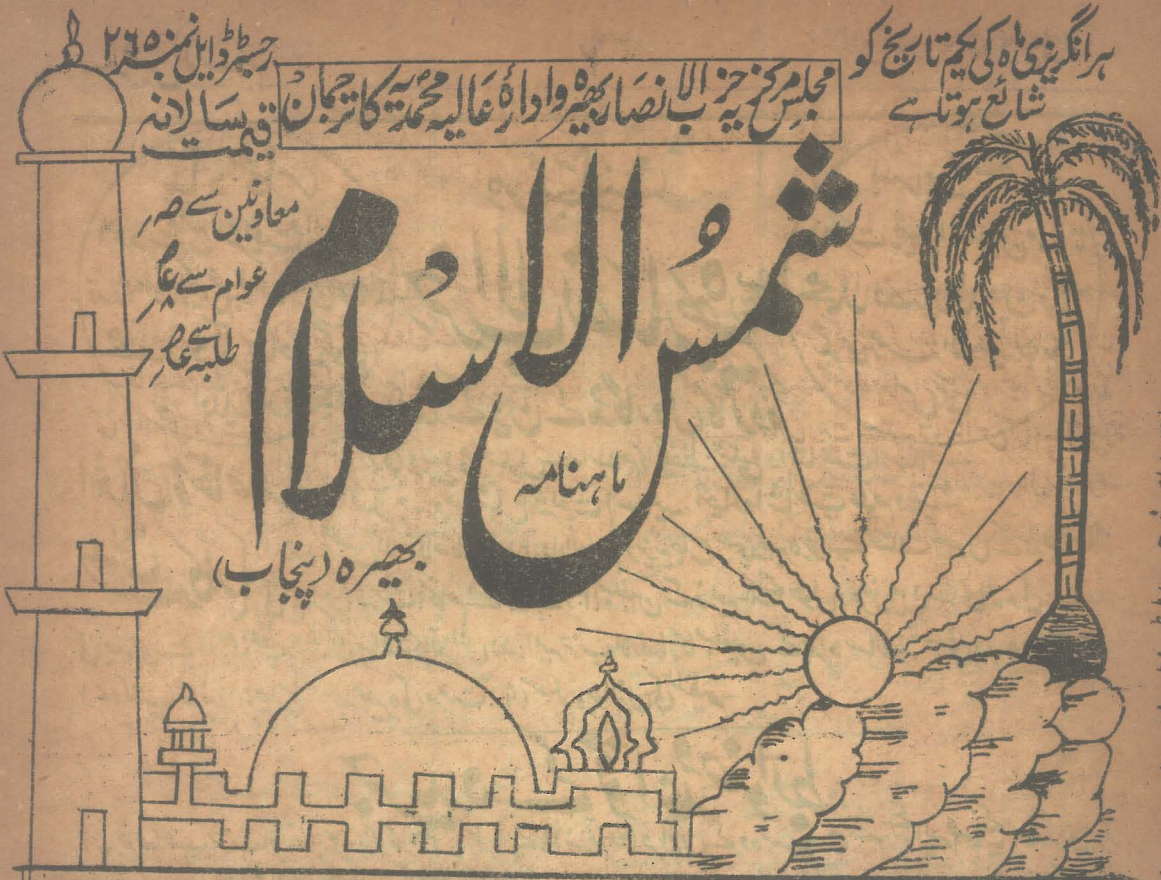 ہر انگریزی ماہ کی یکم تاریخ کو
شائع ہوتا ہے
مجلس مرکزیہ حزب الانصار بھیرہ وادارۂ عالیہ محمدیہ کا ترجمان
رجسٹرڈ ایل نمبر ۲۶۵۰
قیمت سالانہ
معاونین سے
عوام سے
طلبہ سے
شمس الاسلام
ماہنامہ
بھیرہ (پنجاب)